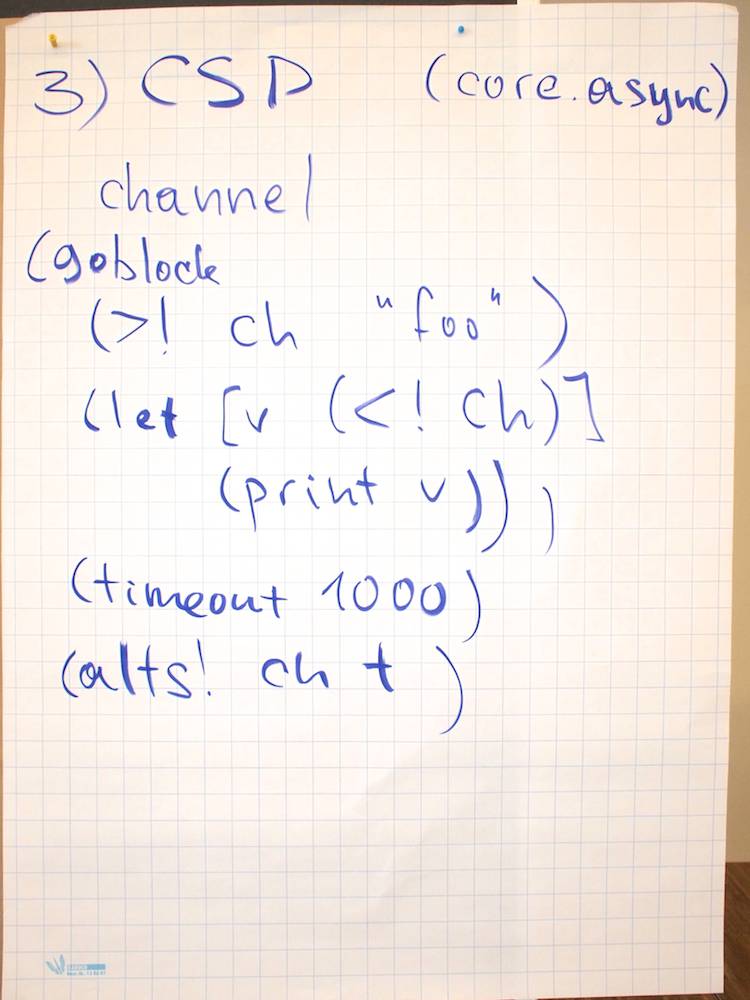 3) CSP (core.async)
channel
(goblock
(>! ch "foo")
(let [v (<! ch)]
(print v)))
(timeout 1000)
(alts! ch t)